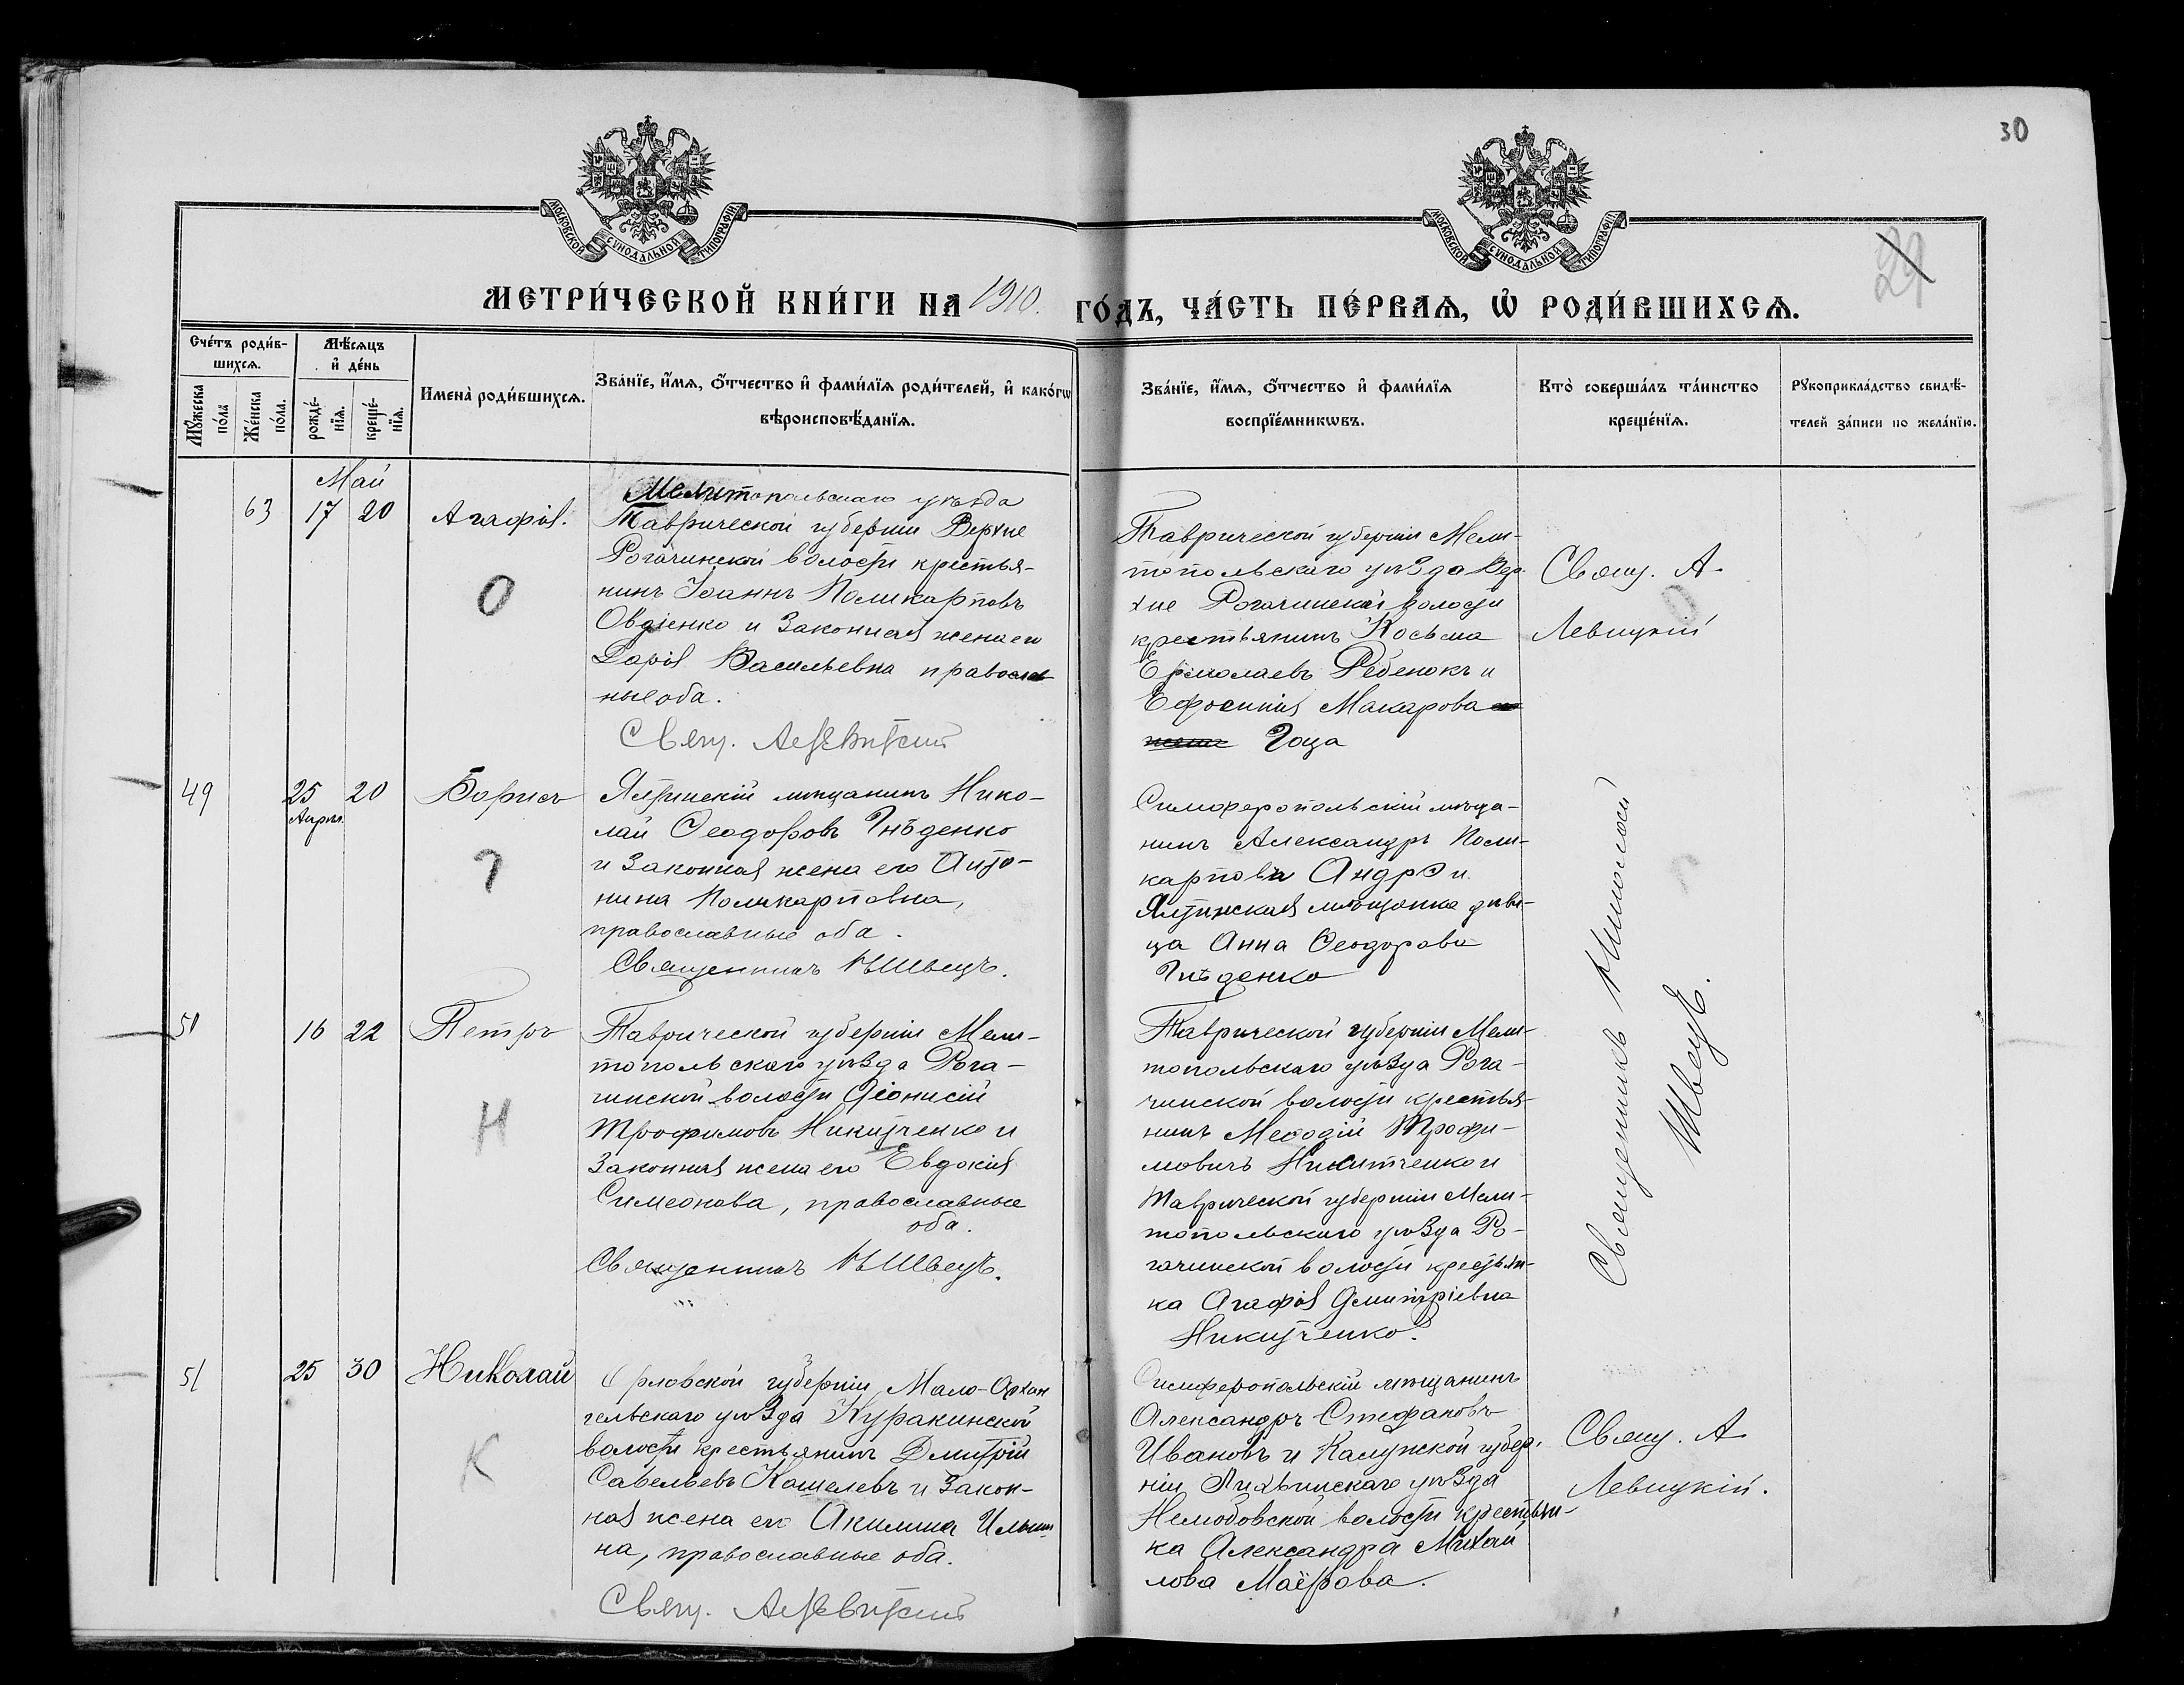 30
29
МОСКОВСКОЙ СѴНОДАЛЬНОЙ ТИПОГРАФІИ
МОСКОВСКОЙ СѴНОДАЛЬНОЙ ТИПОГРАФІИ
МЕТРИ́ЧЕСКОЙ КНИ́ГИ НА 1910. ГО́ДЪ, ЧА́СТЬ ПЕ́РВАѦ, Ѽ РОДИ́ВШИХСѦ.
Сче́тъ роди́в-
шихсѧ.
Мꙋ́жеска по́ла
Же́нска по́ла.
Мѣ́сѧцъ
и҆ де́нь
рожде́-
нїѧ.
креще́-
нїѧ.
Имена̀ роди́вшихсѧ.
Зва́нїе, и҆́мѧ, ѻ҆́тчество и҆ фами́лїѧ роди́телей, и҆ како́гѡ
вѣроисповѣ́данїѧ.
Зва́нїе, и҆́мѧ, ѻ҆́тчество и҆ фами́лїѧ
воспрїе́мникѡвъ.
Кто̀ соверша́лъ та́инство
креще́нїѧ.
Рꙋкоприкла́дство свидѣ́-
телей за́писи по жела́нїю.
Май
63 17 20 Агафія.
О
Мелитопольскаго уѣзда
Таврической губерніи Верхне
Рогачинской волости крестья-
нинъ Іоаннъ Поликарповъ
Овдіенко и законная жена его
Дарія Васильевна православ
ные оба.
Свящ. А. Левитскій
Таврической губерніи Мели-
топольскаго уѣзда Вер-
хне Рогачинской волости
крестьянинъ Косьма
Ермолаевъ Ребенокъ и
Ефросинія Макарова
Гоца
Свящ. А.
Левицкій
49 25 20 Борисъ
Апрѣл.
Г
Ялтинскій мѣщанинъ Нико-
лай Ѳеодоровъ Гнѣденко
и законная жена его Анто-
нина Поликарповна,
православные оба.
Священникъ Н. Швецъ.
Симферопольскій мѣща-
нинъ Александръ Поли-
карповъ Андрэ и
Ялтинская мѣщанка дѣви-
ца Анна Ѳеодорова
Гнѣденко
Священникъ Николай
Швецъ.
50 16 22 Петръ
Н
Таврической губерніи Мели-
топольскаго уѣзда Рога-
чинской волости Діонисій
Трофимовъ Никитченко и
законная жена его Евдокія
Симеонова, православные
оба.
Священникъ Н. Швецъ.
Таврической губерніи Мели-
топольскаго уѣзда Рога-
чинской волости крестья-
нинъ Меѳодій Трофи-
мовичъ Никитченко и
Таврической губерніи Мели-
топольскаго уѣзда Ро-
гачинской волости крестьян-
ка Агафія Димитріевна
Никитченко.
51 25 30 Николай
К
Орловской губерніи Мало-Архан
гельскаго уѣзда Куракинской
волости крестьянинъ Димитрій
Савельевъ Кошелевъ и закон-
ная жена его Акилина Ильи
на, православные оба.
Свящ. А. Левитскій
Симферопольскій мѣщанинъ
Александръ Стефановъ
Ивановъ и Калужской губер-
ніи Лихвинскаго уѣзда
волости крестьян-
ка Александра Михай
лова Маёрова.
Свящ. А
Левицкій.